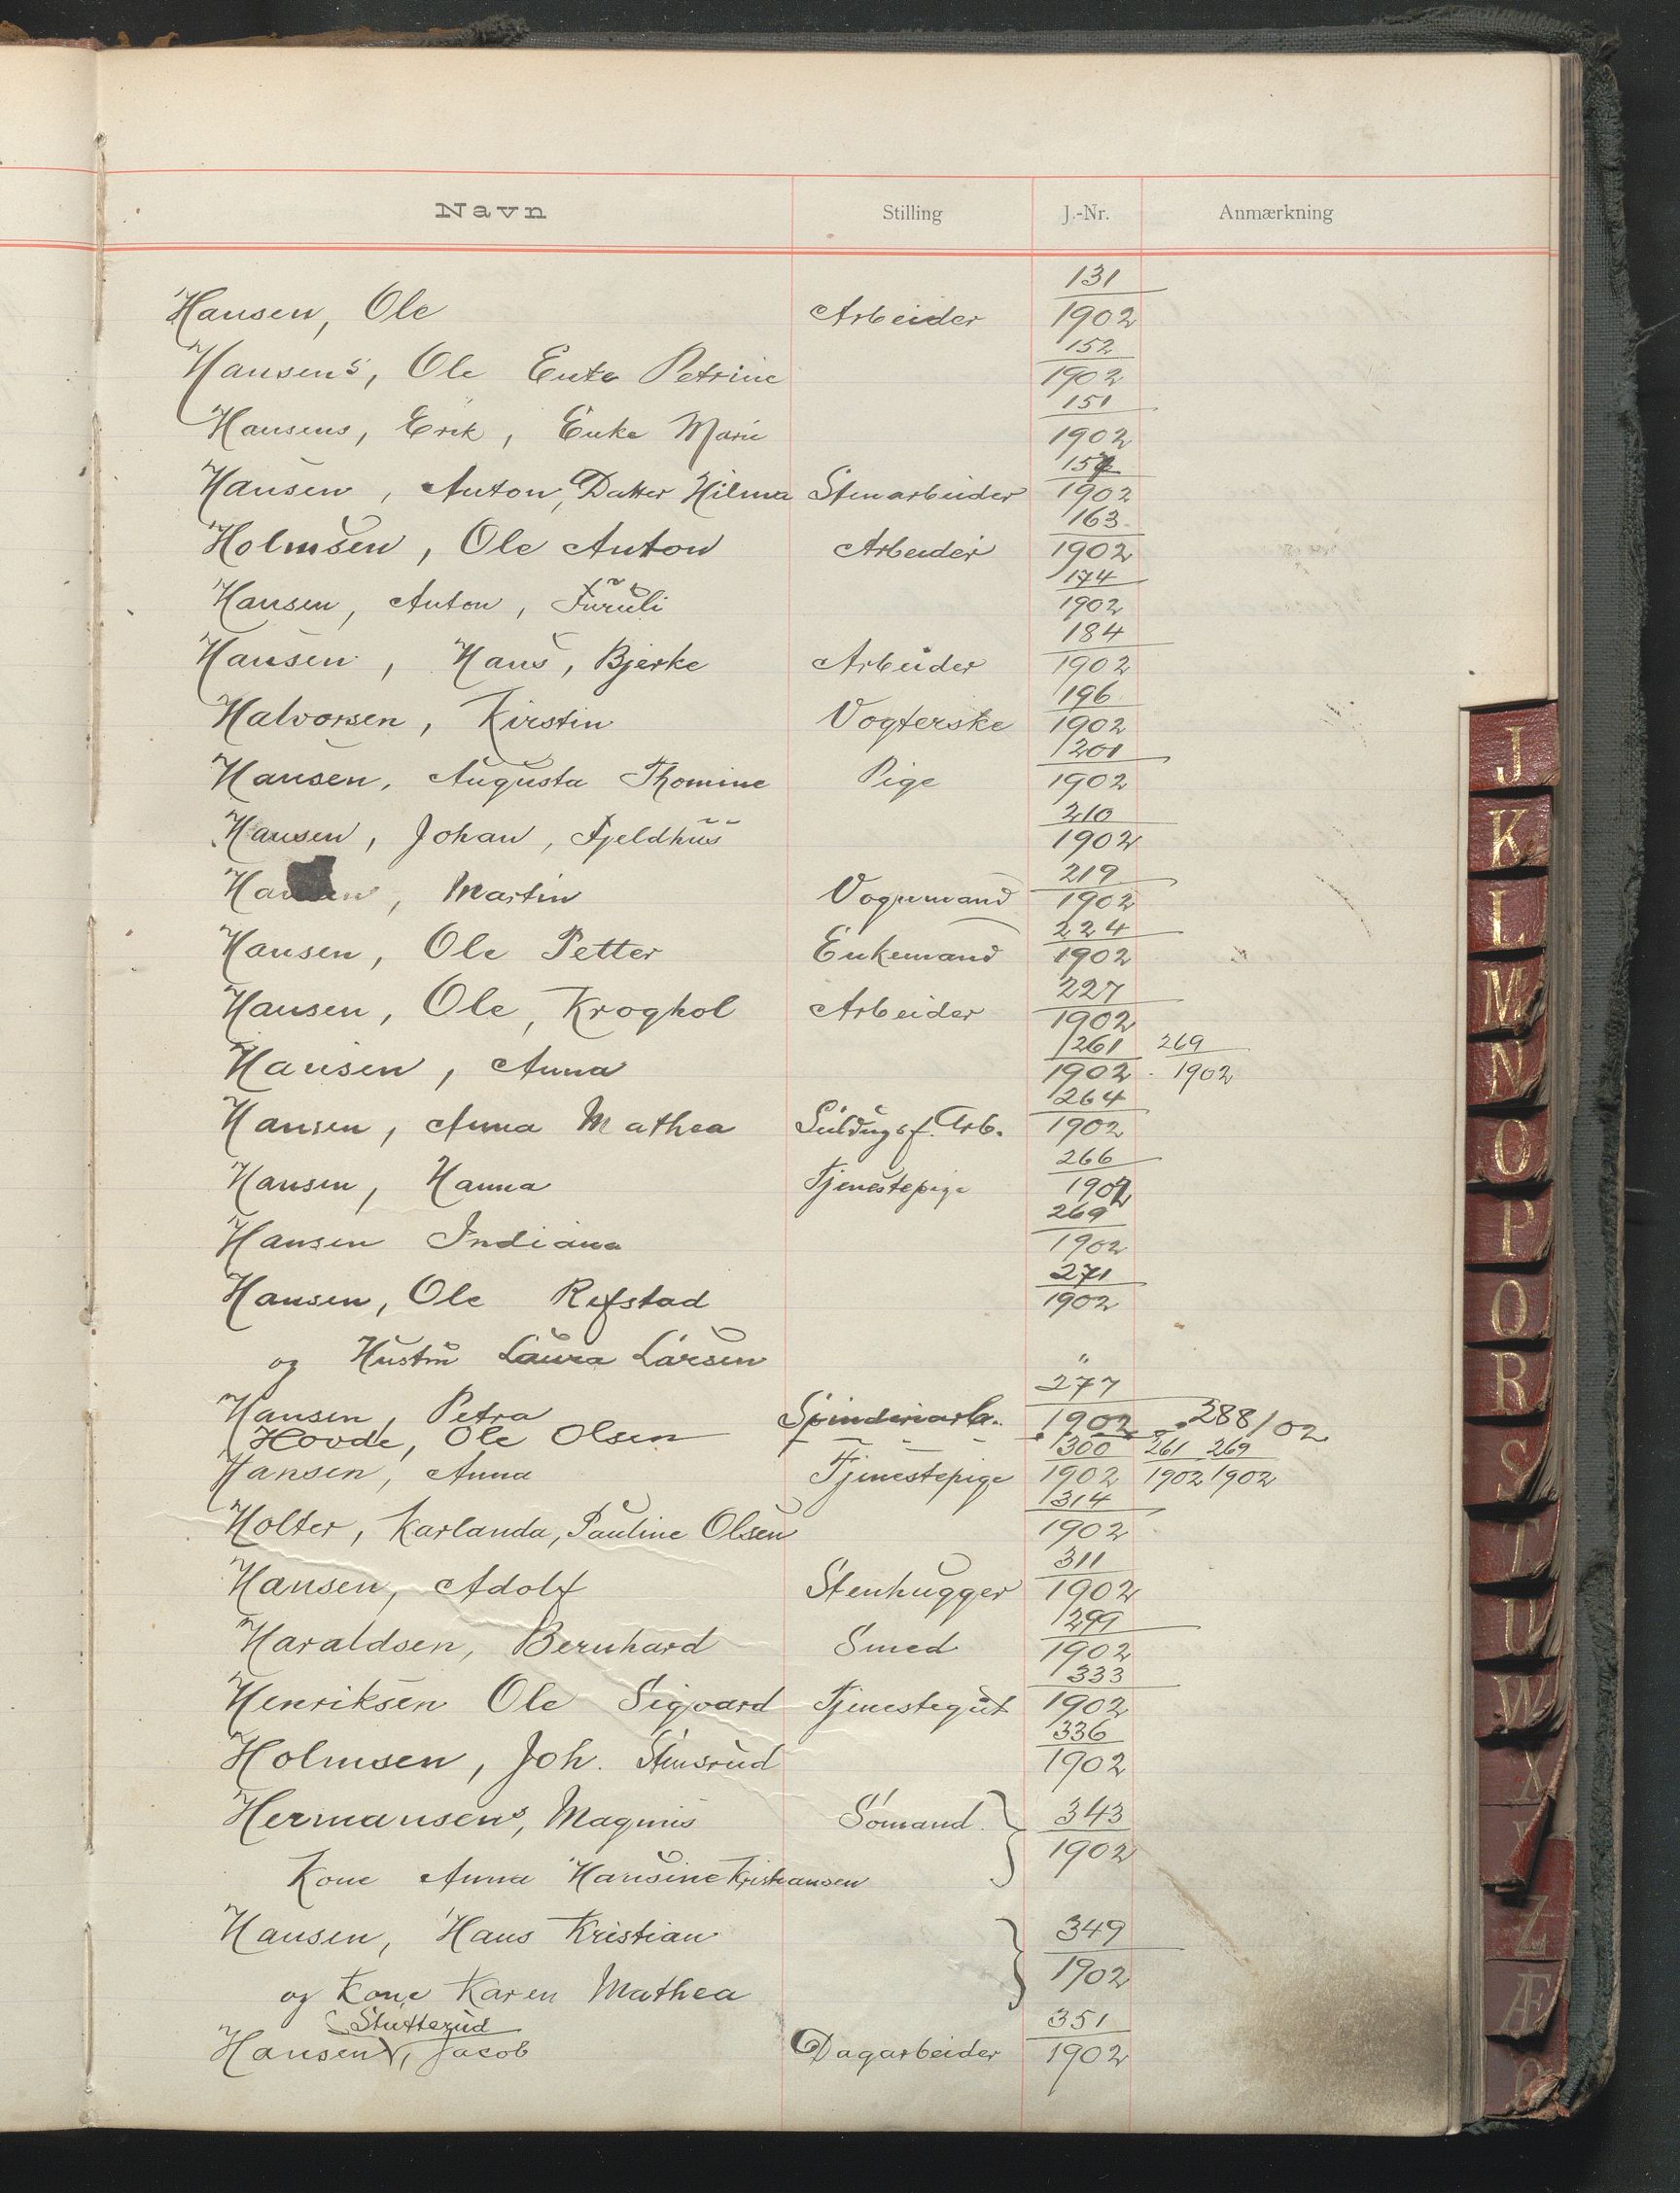 Navn Stilling J.-Nr. Anmærkning
Hansen, Ole Arbeider 131/1902
Hansens, Ole Enke Petrine 152/1902
Hansens, Erik, Enke Marie 151/1902
Hansen, Anton, Datter Hilma Stenarbeider 1902
Holmsen, Ole Anton Arbeider 163/1902
Hansen, Anton, Furuli 174/1902
Hansen, Hans, Bjerke Arbeider 184/1902
Halvorsen, Kirstin Vogterske 196/1902
Hansen, Augusta Thomine Pige 201/1902
Hansen, Johan, Fjeldhus 210/1902
Hansen, Martin Vognmand 219/1902
Hansen, Ole Petter Enkemand 224/1902
Hansen, Ole, Kroghol Arbeider 227/1902
Hansen, Anna 261/1902 269/1902
Hansen, Anna Mathea Arb. 264/1902
Hansen, Hanna Tjenestepige 266/1902
Hansen Indiana 269/1902
Hansen, Ole Refstad 271/1902
og Hustru Laura Larsen "
Hansen, Petra Spinderiarb. 277/1902 288/02
Hovde, Ole Olsen
Hansen, Anna Tjenestepige 300/1902 261/1902 269/1902
Holter, Karlanda, Pauline Olsen 314/1902
Hansen, Adolf Stenhugger 311/1902
Haraldsen, Bernhard Smed 299/1902
Henriksen Ole Sigvard Tjenestegut 333/1902
Holmsen, Joh. Stensrud 336/1902
Hermansens, Magnus Sömand. 343/1902
Kone Anna Hansine Kristiansen
Hansen, Hans Kristian 349/1902
og Kone Karen Mathea
Stutterud
Hansen, Jacob Dagarbeider 351/1902
J
K
L
M
N
O
P
Q
R
S
T
U
W
X
Y
Z
Æ
Ø